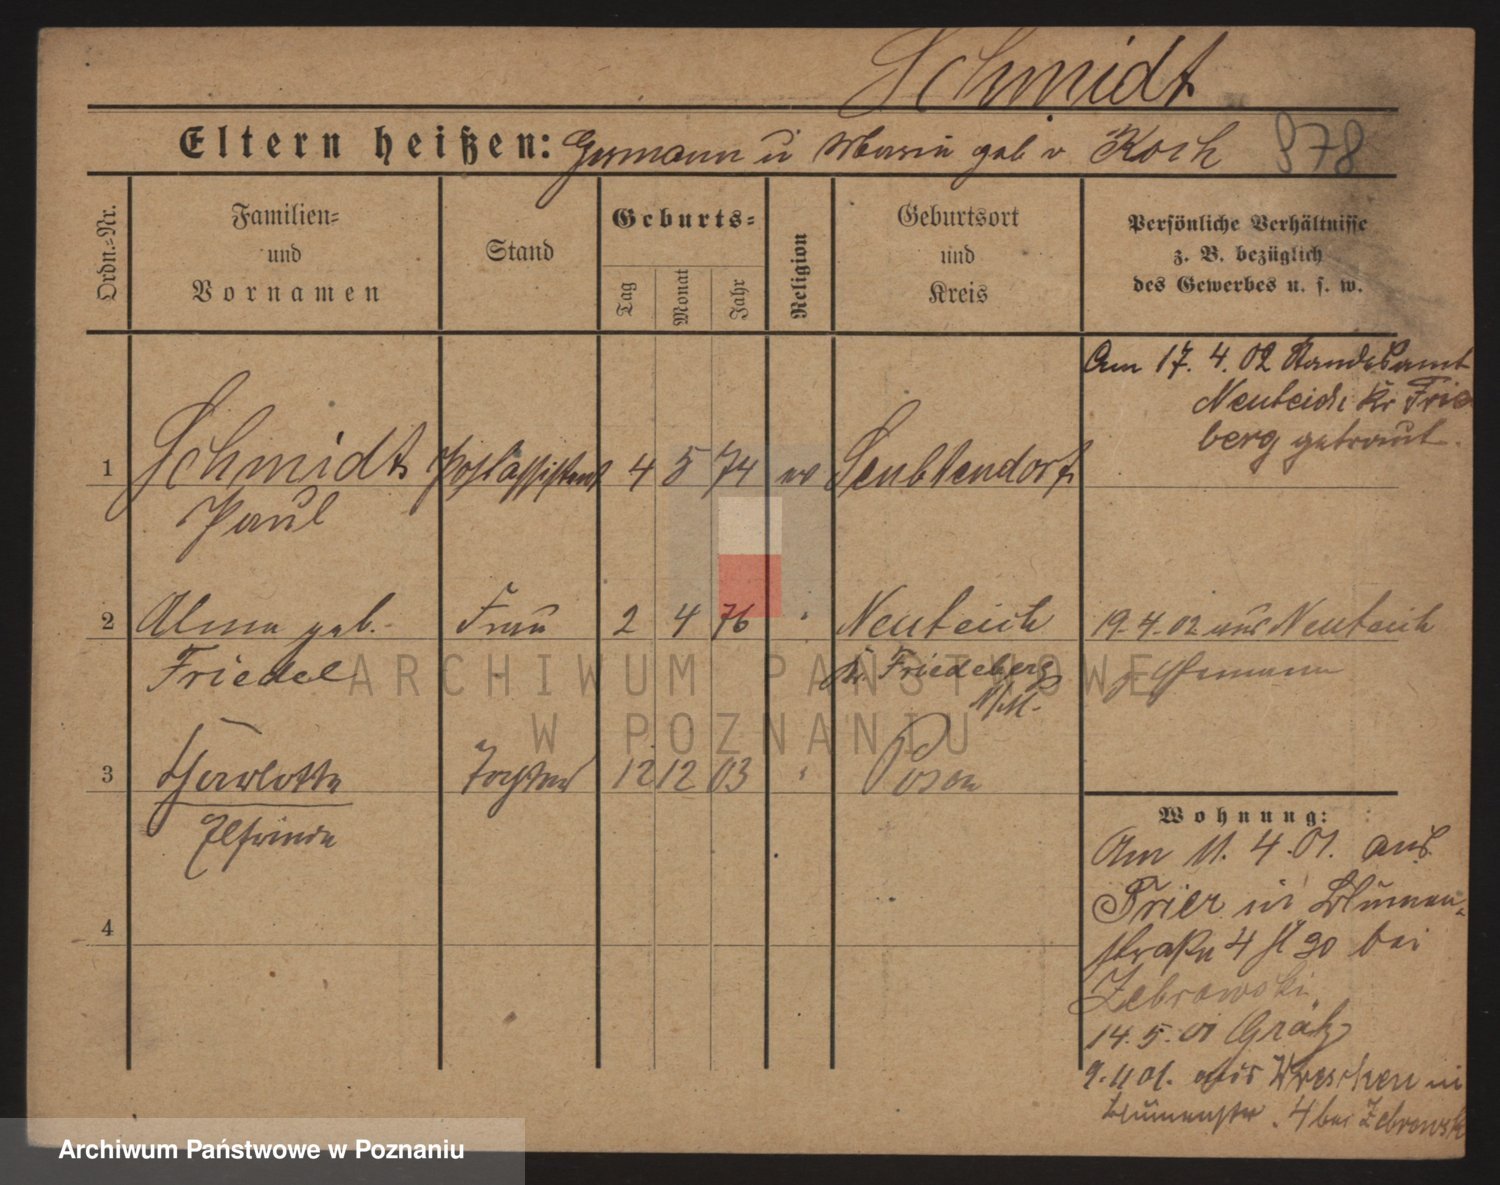 Schmidt
Eltern heißen: Hermann u Marie geb v Koch 978
Ordn.-Nr.
Familien-
und
Vornamen
Stand
Geburts-
Tag
Monat
Jahr
Religion
Geburtsort
und
Kreis
Persönliche Verhältnisse
z. B. bezüglich
des Gewerbes u. s. w.
Am 17. 4. 02 Standesamt
Neuteich Kr Frie
berg getraut.
1 Schmidt Postassistent 4 5 74 ev
Paul
2 Alma geb. Frau 2 4 76 " Neuteich 19.4.02 aus Neuteich
Friedel Kr. Friedeberg
N/M.
3 Charlotte Tochter 12 12 03 " Posen
Elfriede
4
Wohnung:
Am 11. 4. 01. aus
Trier in Blumen-
straße 4 II bei
Zebrowski
14. 5. 01 Grätz
9. 11 01. aus Wreschen in
Blumenstr. 4 bei Zebrowski
ARCHIWUM PAŃSTWOWE
W POZNANIU
Archiwum Państwowe w Poznaniu